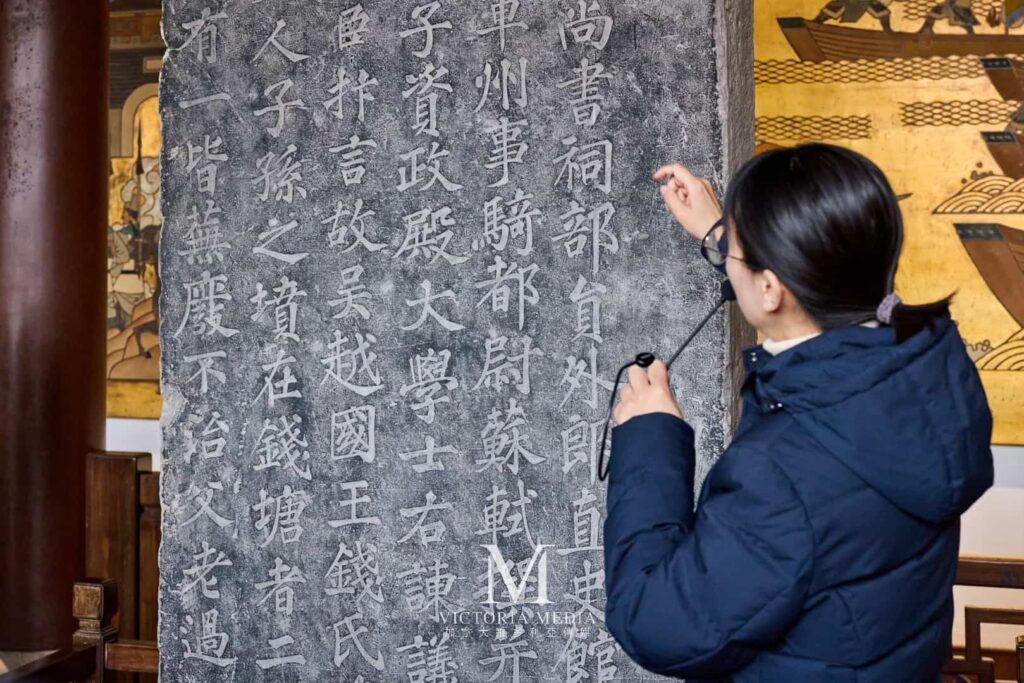 尚書祠部貟外郎直史館
軍州事騎都尉蘇軾并
子資政殿大學士右諫議
臣抃言故吳越國王錢氏
人子孫之墳在錢塘者二
有一皆蕪廢不治父老過
VICTORIA MEDIA